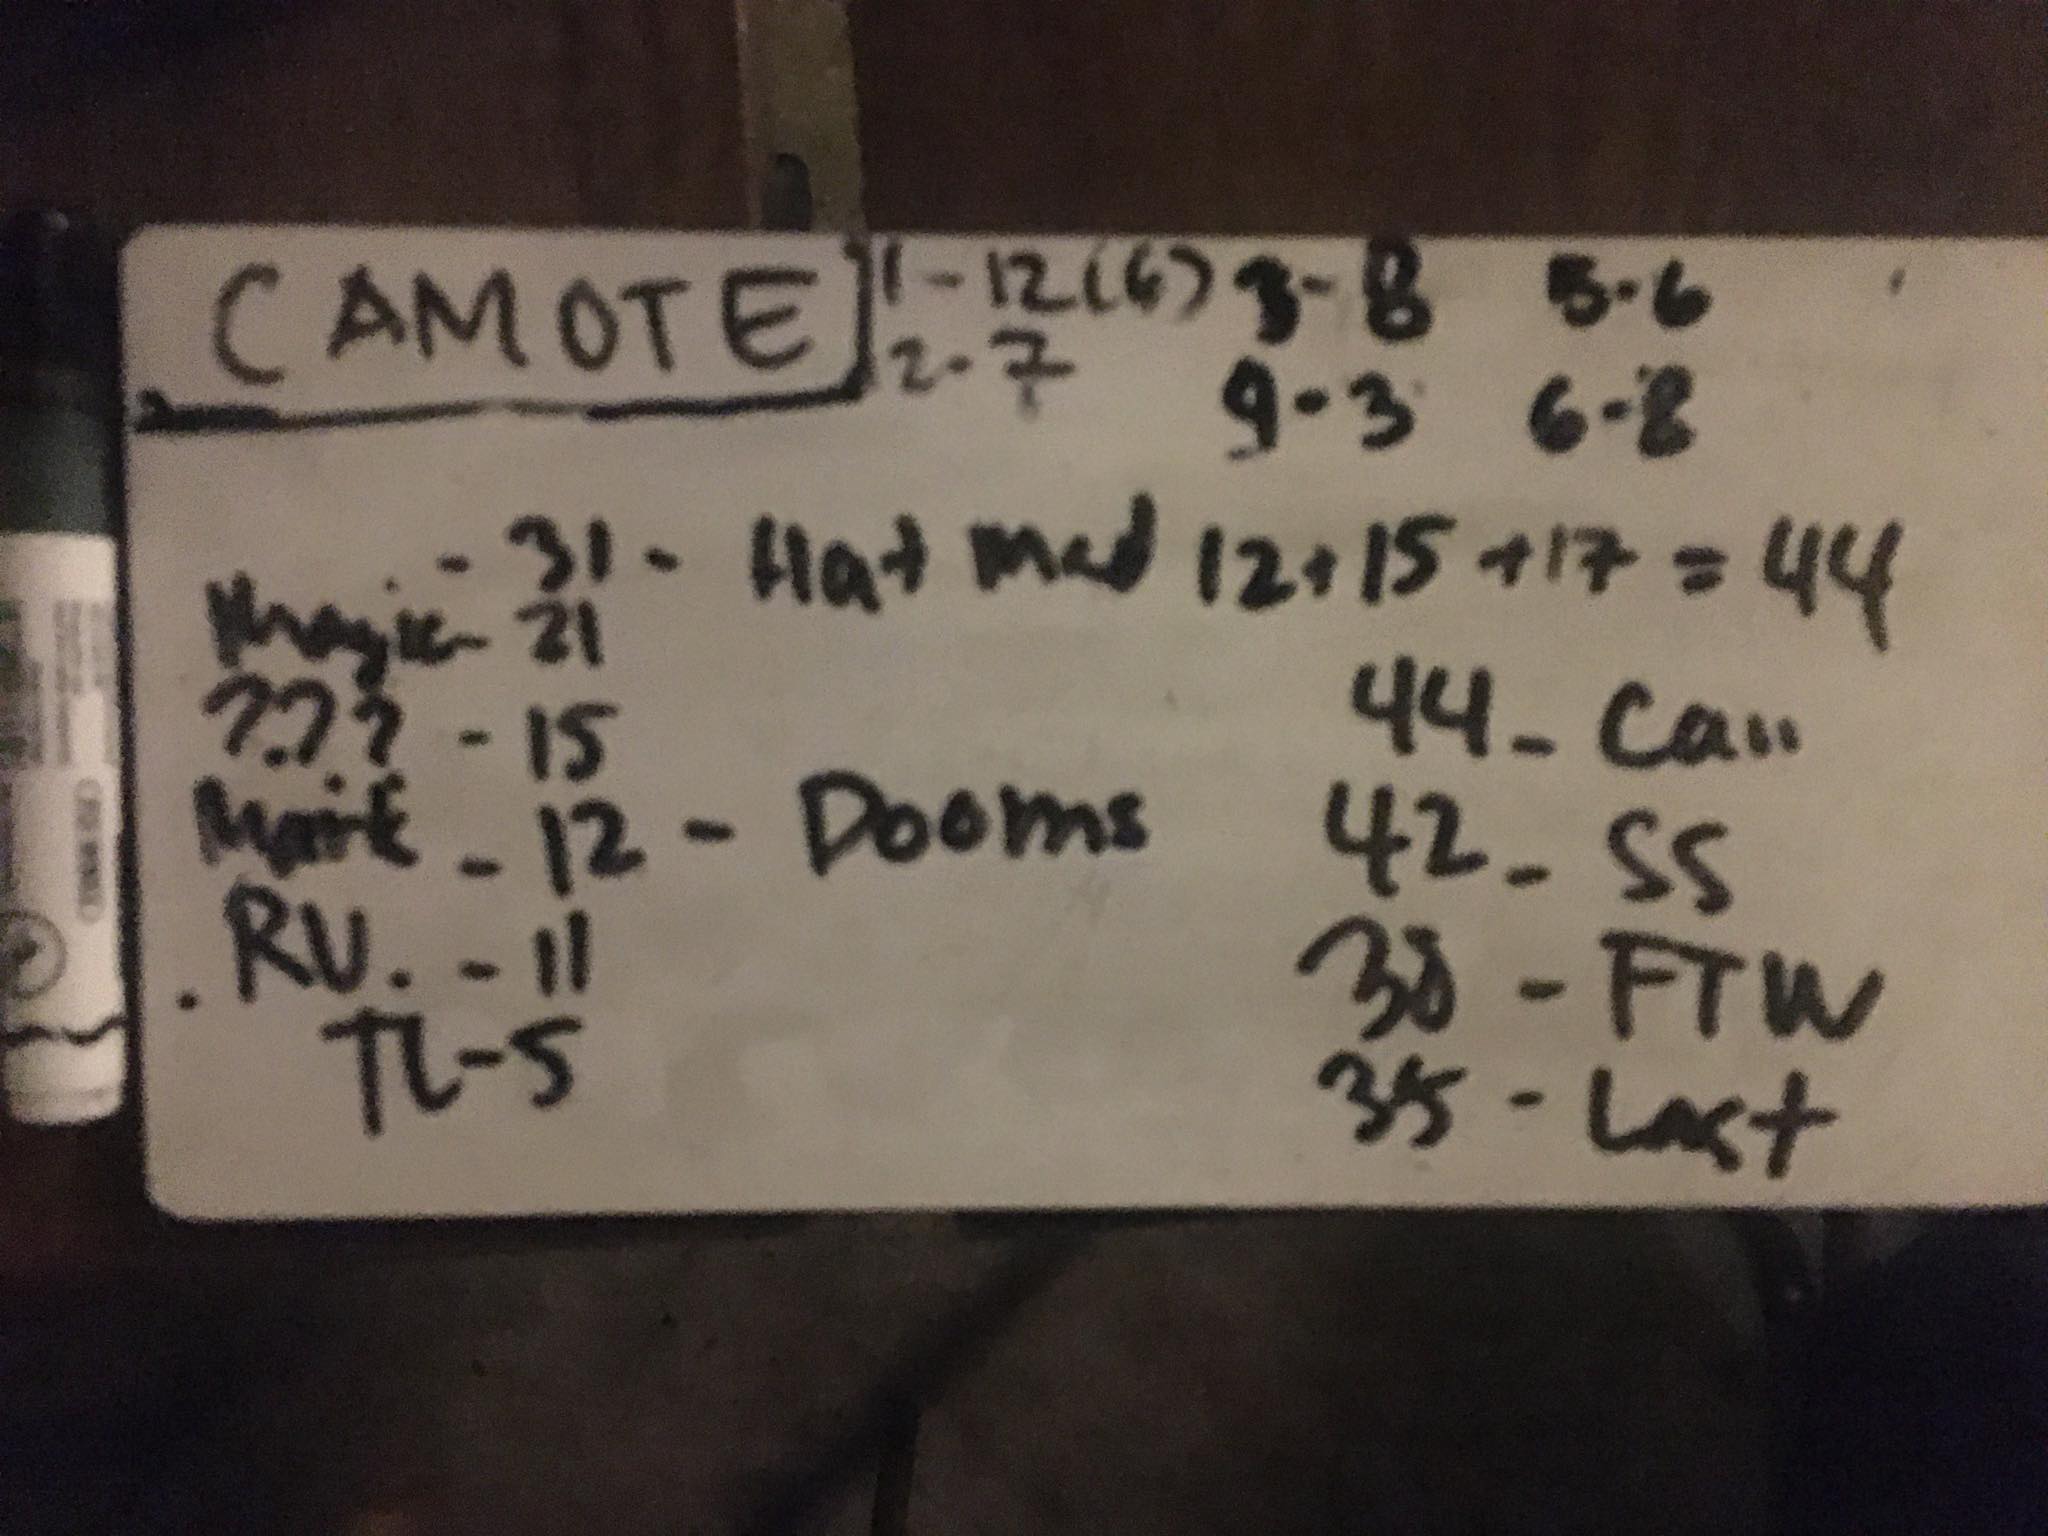 CAMOTE
1-12(6) 3-8 5-6
2-7 9-3 6-8
- 31 - Hat mad 12+15+17=44
Magic - 21
??? - 15
- 12 - Dooms
RV. - 11
TL-5
44 - Call
42 - SS
38 - FTW
35 - Last